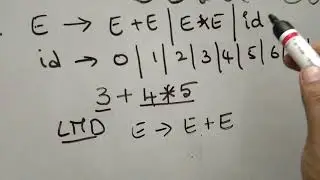 E → E+E | E*E | id
id → 0|1|2|3|4|5|6|
3 + 4*5
LMD E → E+E